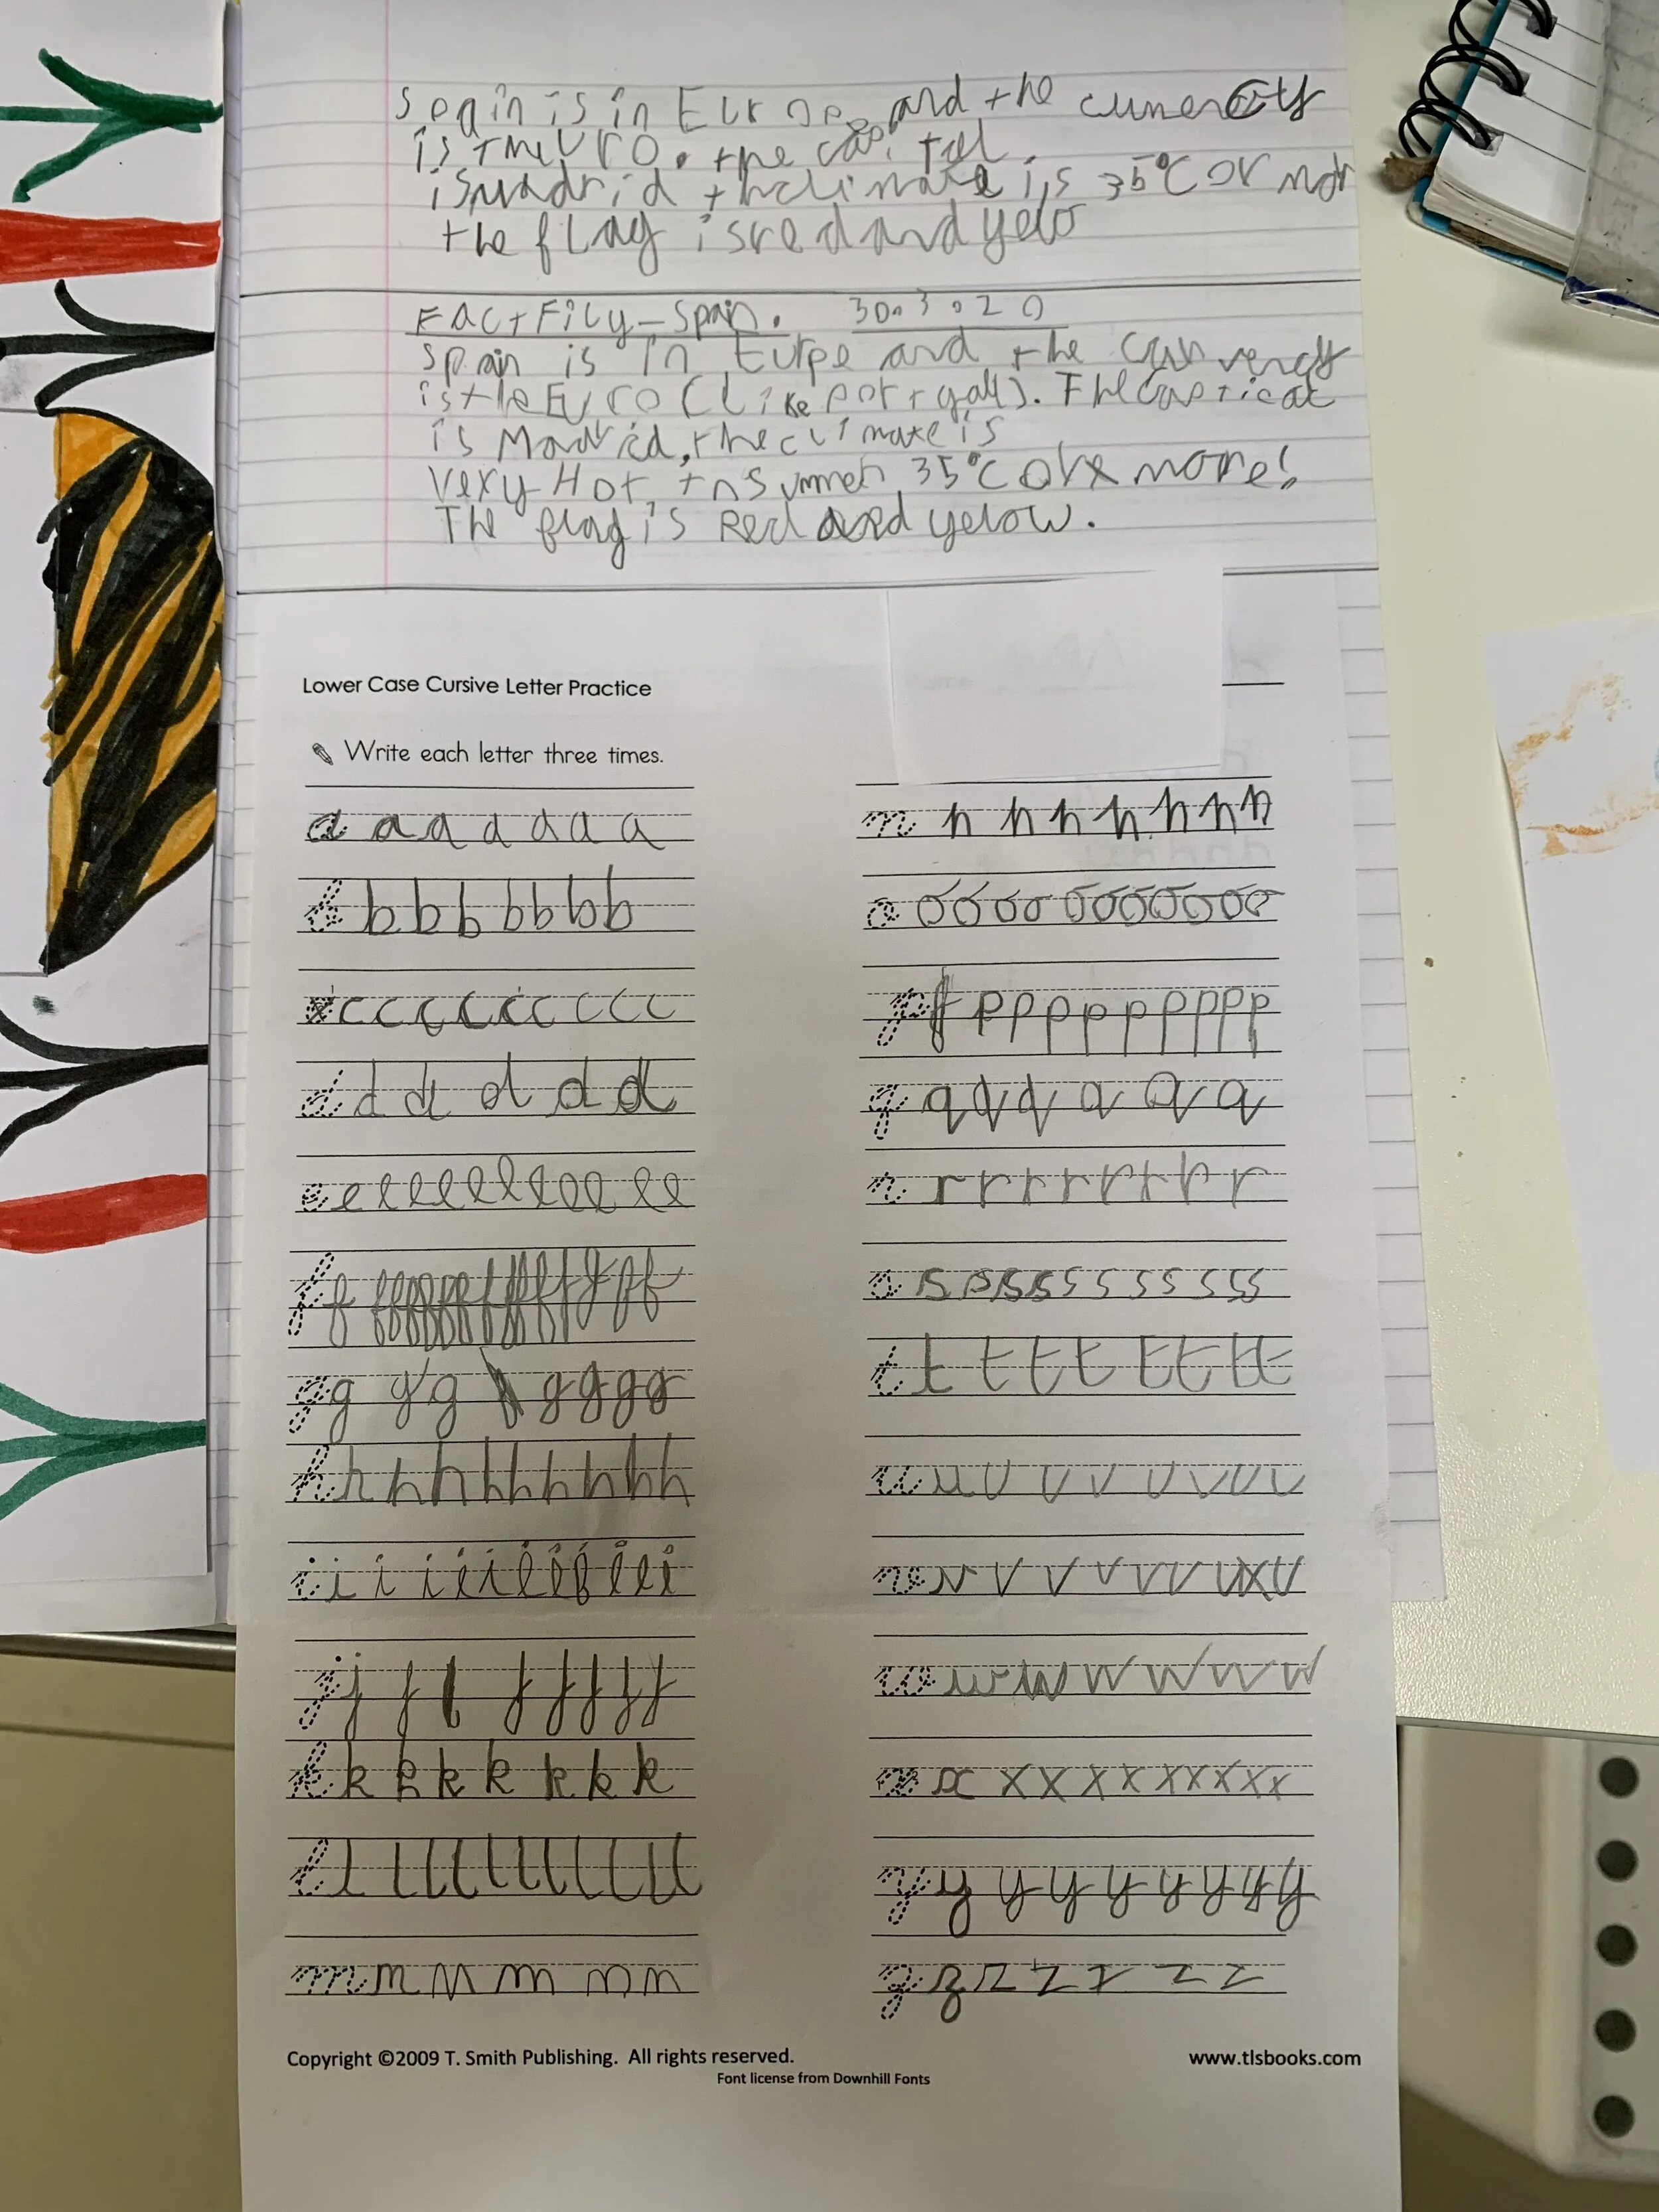 spain is in Europe and the currency
is the uro. the capital
is madrid the climate is 35°C or mor
the flag is red and yelo
Fact Fily - Spain. 30.3.20
Spain is in Eurpe and the currency
is the Euro (Like portygal). The
is Madrid, the climate is
very Hot, In Summer 35°C or more!
The flag is Red and yelow.
Lower Case Cursive Letter Practice
Write each letter three times.
a a a a a a a
b b b b b b b b
c c c c c c c c c
d d d d d d
e e e e e e e e e e e
f f
g g g g g g g g
h h h h h h h h h h
i i i i i i i i i i i i
j j j j j j j j
k k k k k k k k
l l l l l l l l l l l
m m m m m n
n n n n n n n n
o o o o o o o o o o o o
p p p p p p p p p p p
q q q q q q q
r r r r r r r r r
s s s s s s s s s s s s
t t t t t t t t t
u u u v v u v u v
v v v v v v v
w w w w w w w
x x x x x x x x x x x
y y y y y y y y y
z z z z z z z
Copyright ©2009 T. Smith Publishing. All rights reserved.
www.tlsbooks.com
Font license from Downhill Fonts